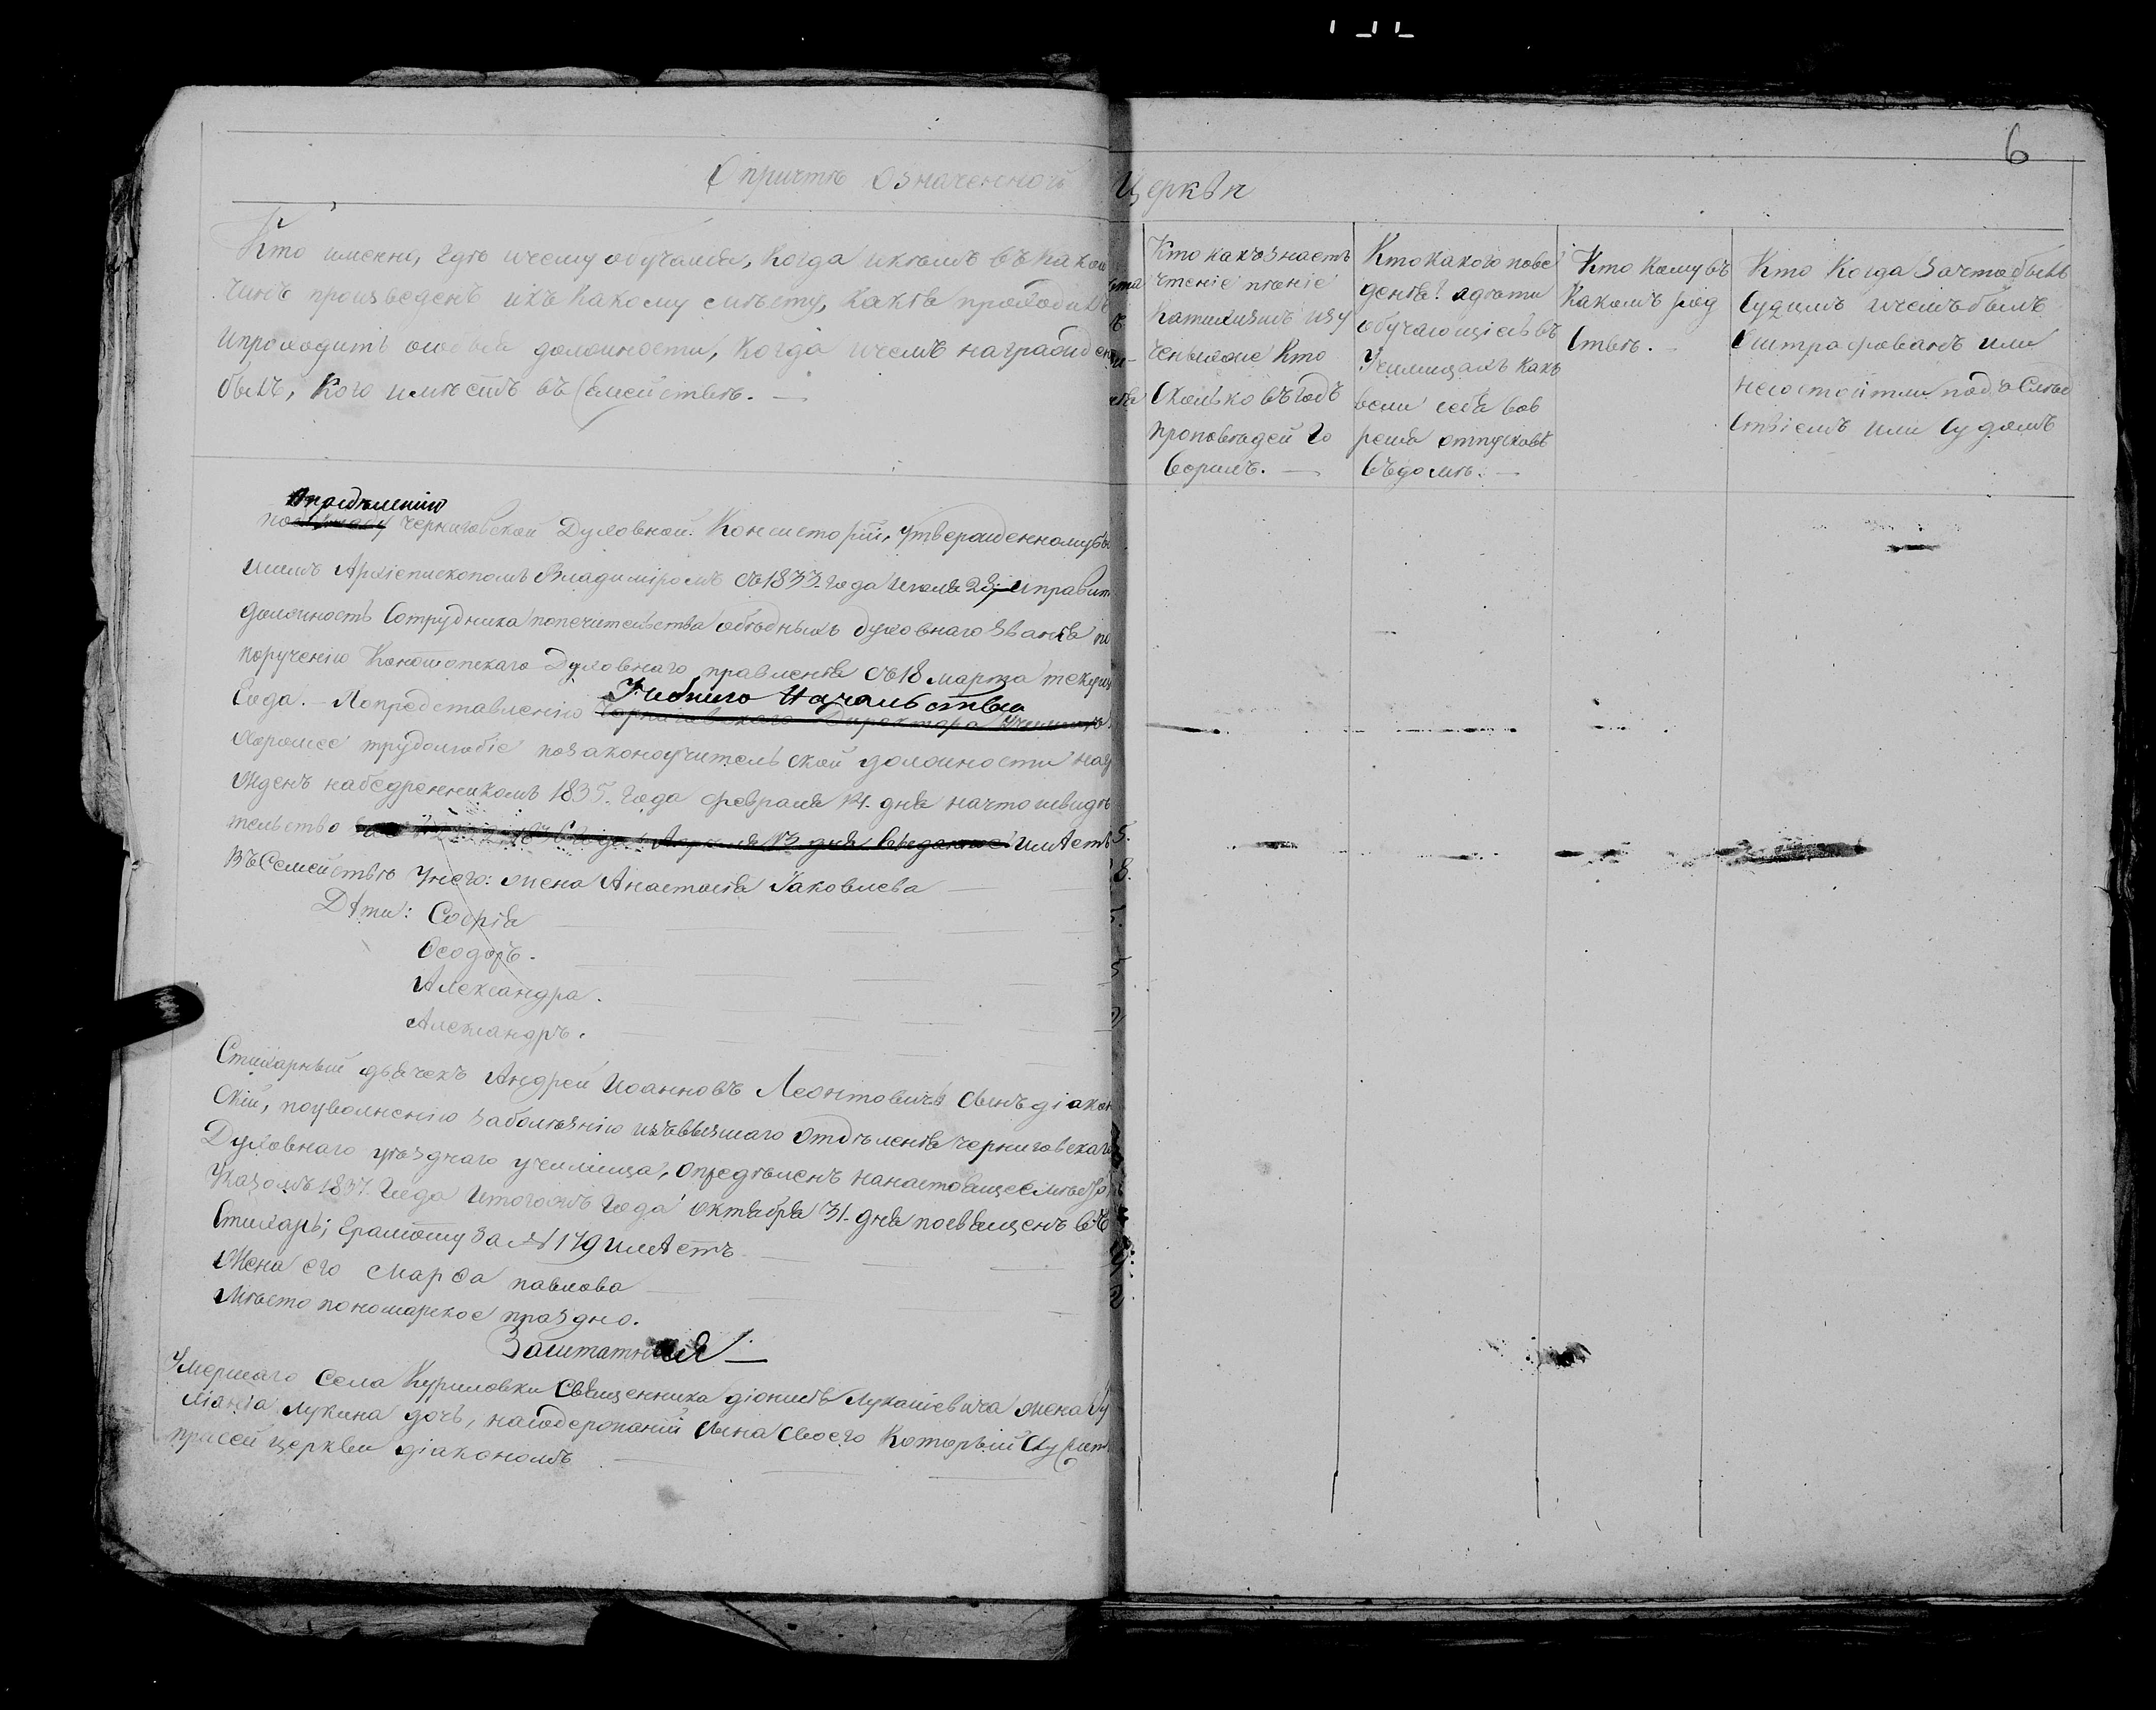 6
О причтѣ означенной Церкви
Кто именно, гдѣ и чему обучался, когда и кѣмъ въ какой
чинъ произведенъ и къ какому мѣсту, какія проходилъ
и проходитъ особыя должности, когда и чемъ награжден
былъ, кого имѣетъ въ Семействѣ. —
Кто какъ знаетъ
чтеніе пѣніе
катихизисъ и зу
Кто
Сколько въ годъ
проповѣдей го
ворилъ. —
Кто какого пове
денія? а дѣти
обучающіесѧ въ
Училищахъ какъ
вели себя вов
ремя отпусковъ
въ домъ. —
Кто кому въ
какомъ род
ствѣ. —
Кто когда за что былъ
Судимъ и чемъ былъ
Ештрафованъ или
не состоитъ ли подъ Слѣд
ствіемъ или Судомъ
Опредѣленію
по Черниговской Духовной Консисторіи, утвержденному бы
шимъ Архіепископомъ Владиміромъ съ 1833. года Июля 23; и правит
должность Сотрудника попечительства о бѣдныхъ духовнаго званія по
порученію Конотопскаго Духовнаго правленія съ 18 марта текущ
Года. — По представленію Черниговскаго Директора Училищъ
Учебнаго Начальства
хорошее трудолюбіе по законоучительской должности наг
жденъ набедренникомъ 1835. года февраля 14. дня на что свидѣ
тельство 1836 года Апреля 13 дня выданное имѣетъ
Въ Семействѣ у него: жена Анастасія Іаковлева —
Дѣти: Софія
Ѳеодоръ.
Александра.
Александръ.
Стихарный дьячекъ Андрей Иоанновъ Леонтовичъ Сынъ діакон
скій, по уволненію за болѣзнію изъ высшаго отдѣленія Черниговскаго
Духовнаго уѣзднаго училища, опредѣленъ на настоящее мѣсто
Указомъ 1837. Года и того жъ года октября 31. дня посвященъ въ
Стихарь; грамоту за № 179 имѣетъ.
Жена его Марѳа павлова
Мѣсто пономарское праздно.
Заштатная —
Умершаго Села Куриловки Священника Діонисія Лукашевича жена
Лукина дочь, на содержаніи Сына Своего который Служит
при сей церкви діакономъ